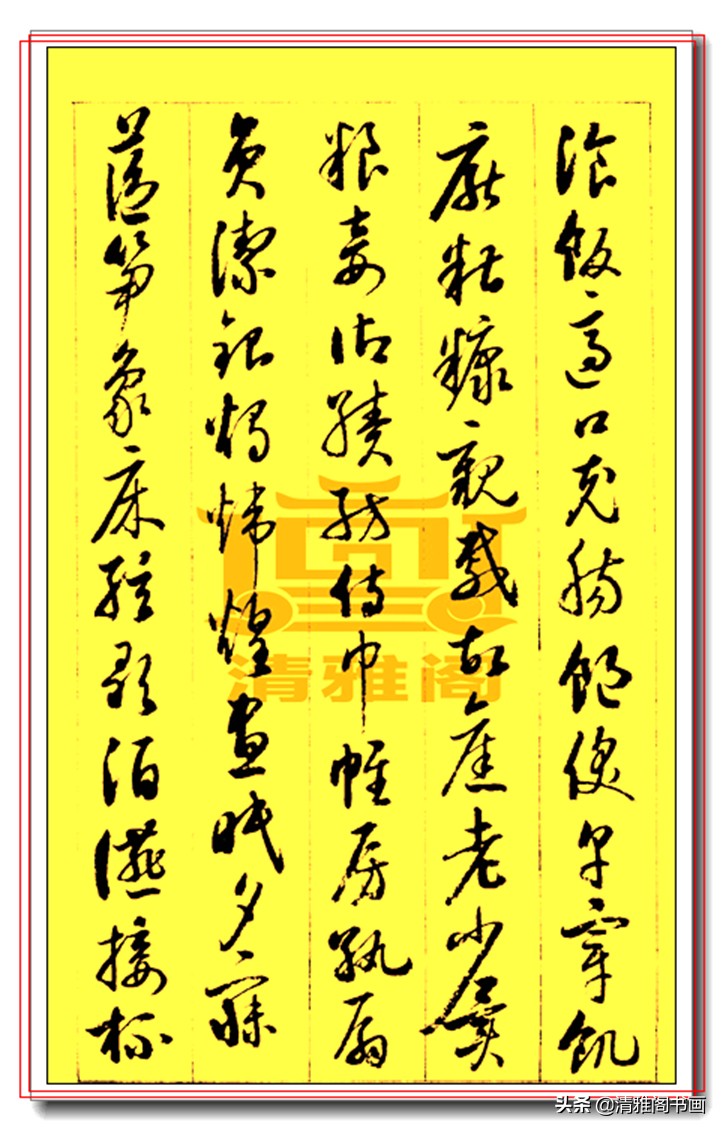 湌飯適口充腸飽飫亨宰飢
厭糟糠親戚故舊老少異
糧妾御績紡侍巾帷房紈扇
員潔銀燭煒煌晝眠夕寐
藍筍象床絃歌酒讌接杯
清雅阁
头条 @清雅阁书画